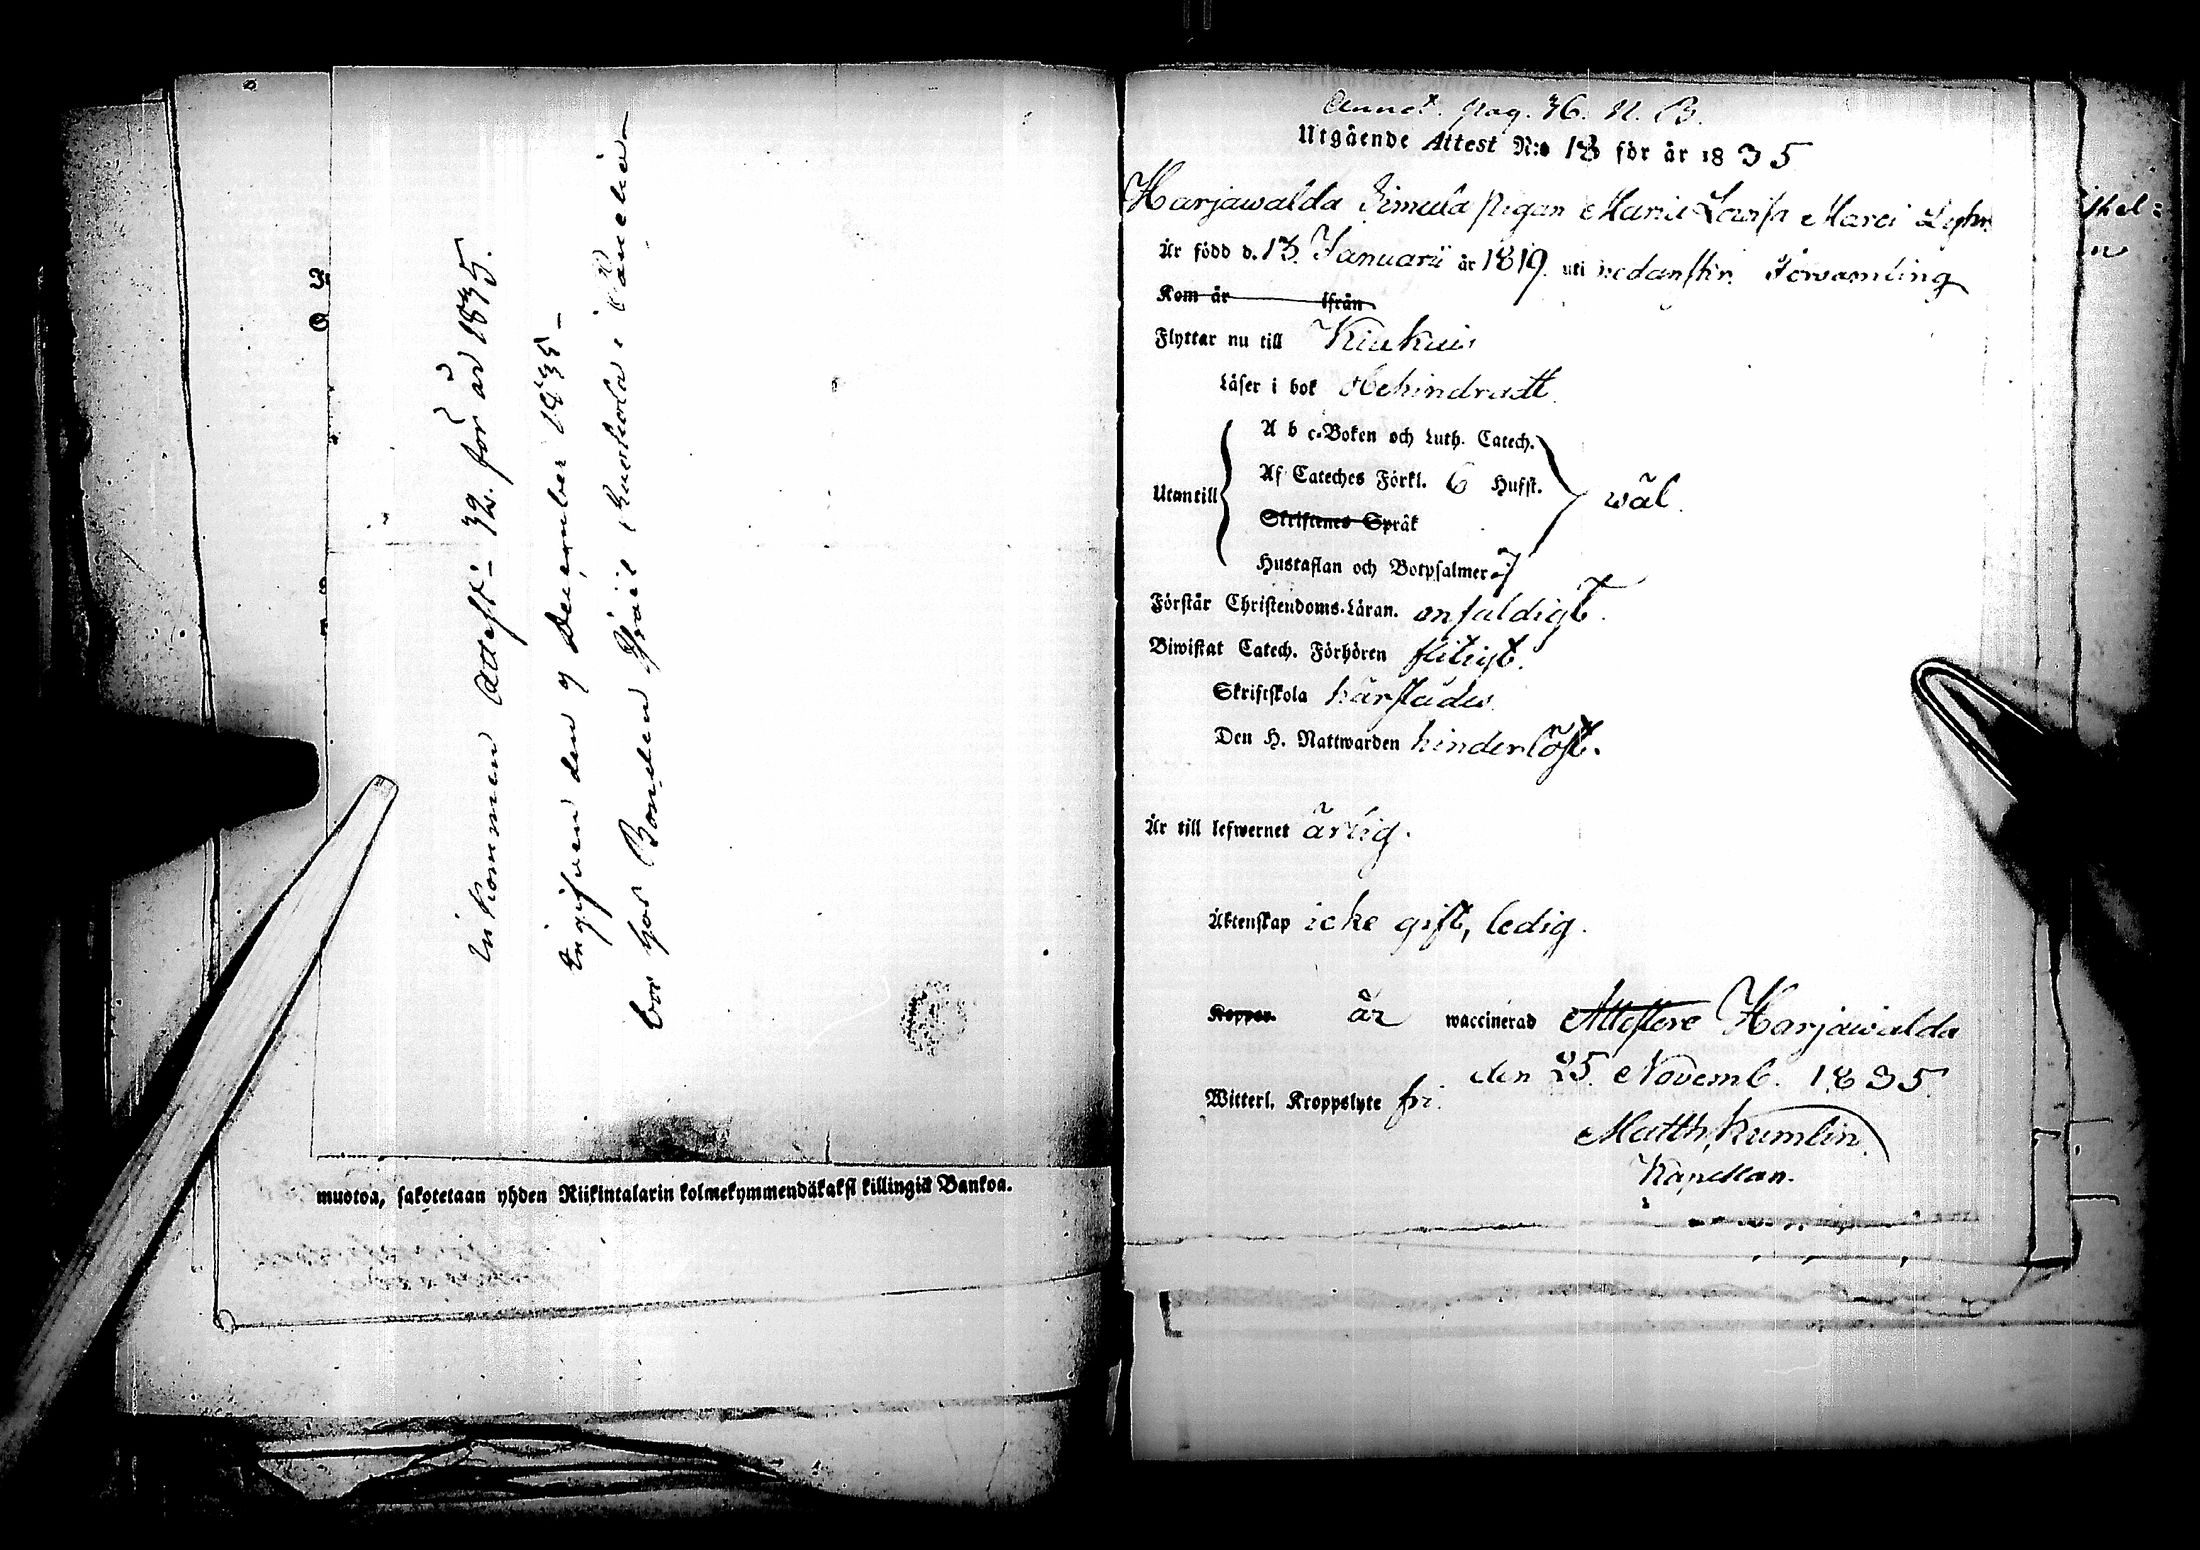 Inkommen Attest 32. för år 1835.
Ingifven den 9 December 1835
bor hos Bonden
muotoa, sakotetaan yhden Riikintalarin kolmekymmendäkaksi killingiä Bankoa.
Annot. pag. 36. N. B.
Utgående Attest N:o 18 för år 1835
Harjawalda pigan Maria Lovisa
Är född d. 13. Januarii år 1819. uti nedanskr. Församling
Kom år ifrån
Flyttar nu till Kiukais
Läser i bok Obehindradt
A b c-Boken och Luth. Catech.
Af Cateches Förkl. 6 Hufst.
Utantill wäl.
Skriftenes Språk
Hustaflan och Botpsalmer
Förstår Christendoms-Läran. enfaldigt.
Biwistat Catech. Förhören flitigt.
Skriftskola härstädes
Den H. Nattwarden hinderlöst.
Är till lefwernet ärlig.
Äktenskap icke gift, ledig.
Koppor. är waccinerad Attestere Harjawalda
den 25. Novemb. 1835
Witterl. Kroppslyte fri.
Matth. Kumlin
Kapellan.